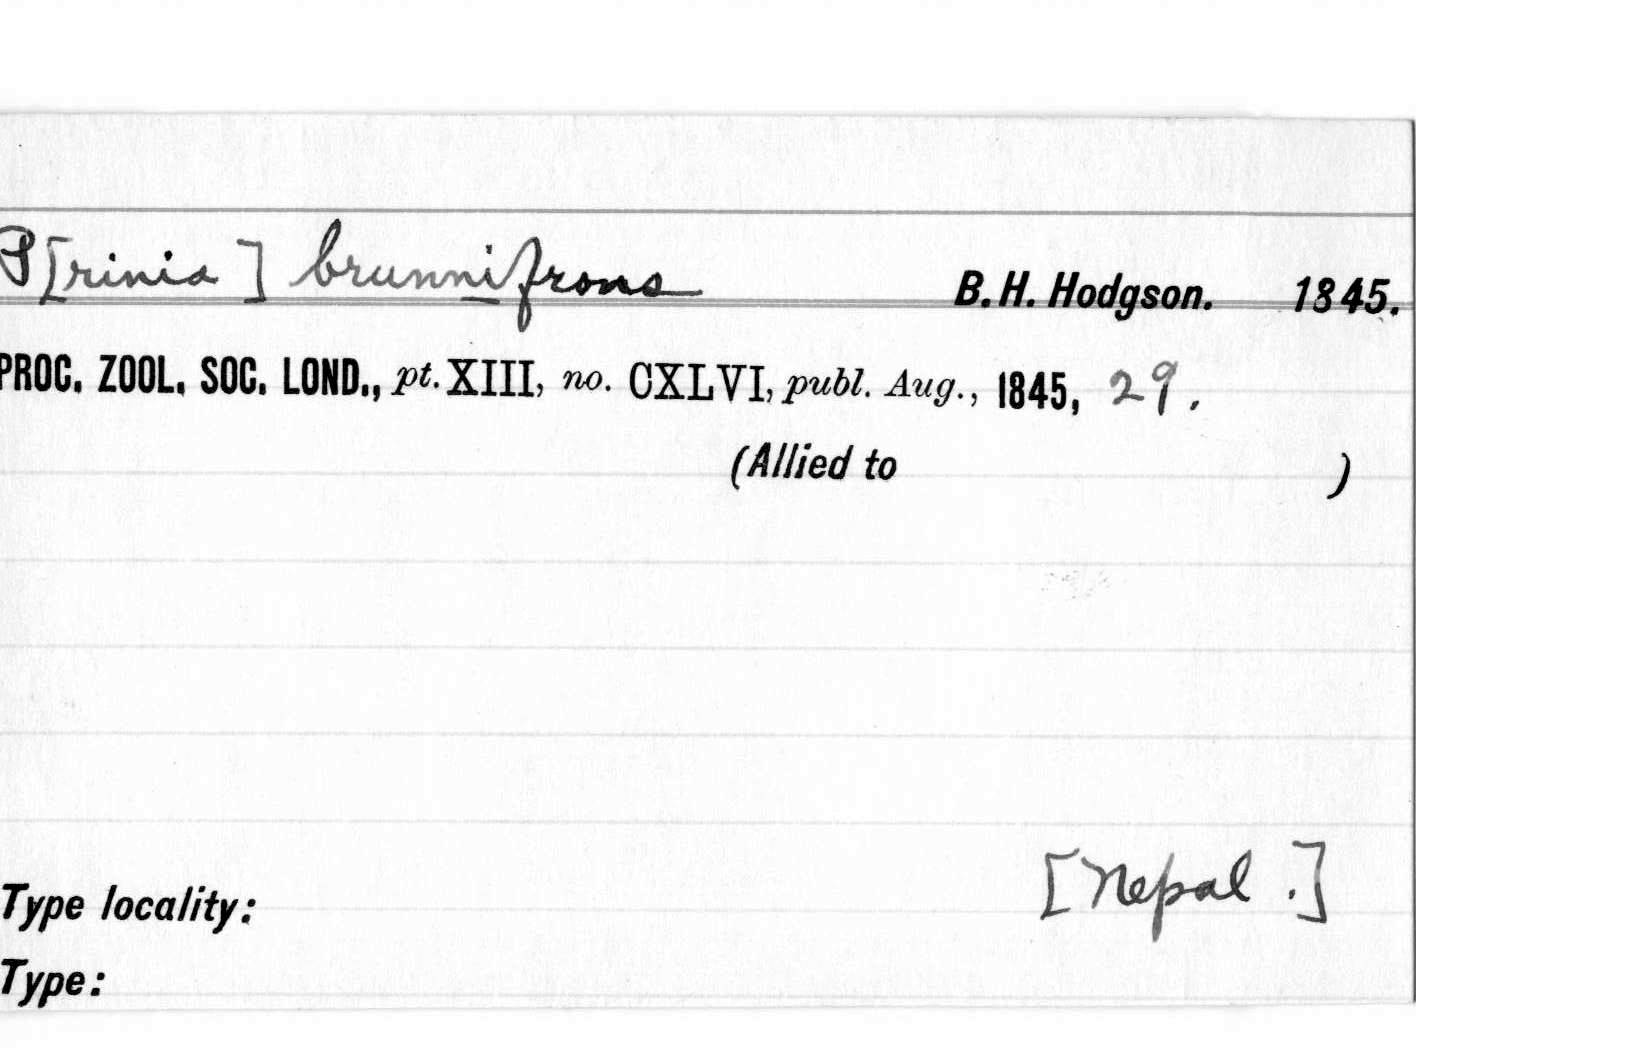 P[rinia] brunnifrons B. H. Hodgson. 1845.
PROC. ZOOL. SOC. LOND., pt. XIII, no. CXLVI, publ. Aug., 1845, 29.
(Allied to )
Type locality: [Nepal.]
Type: